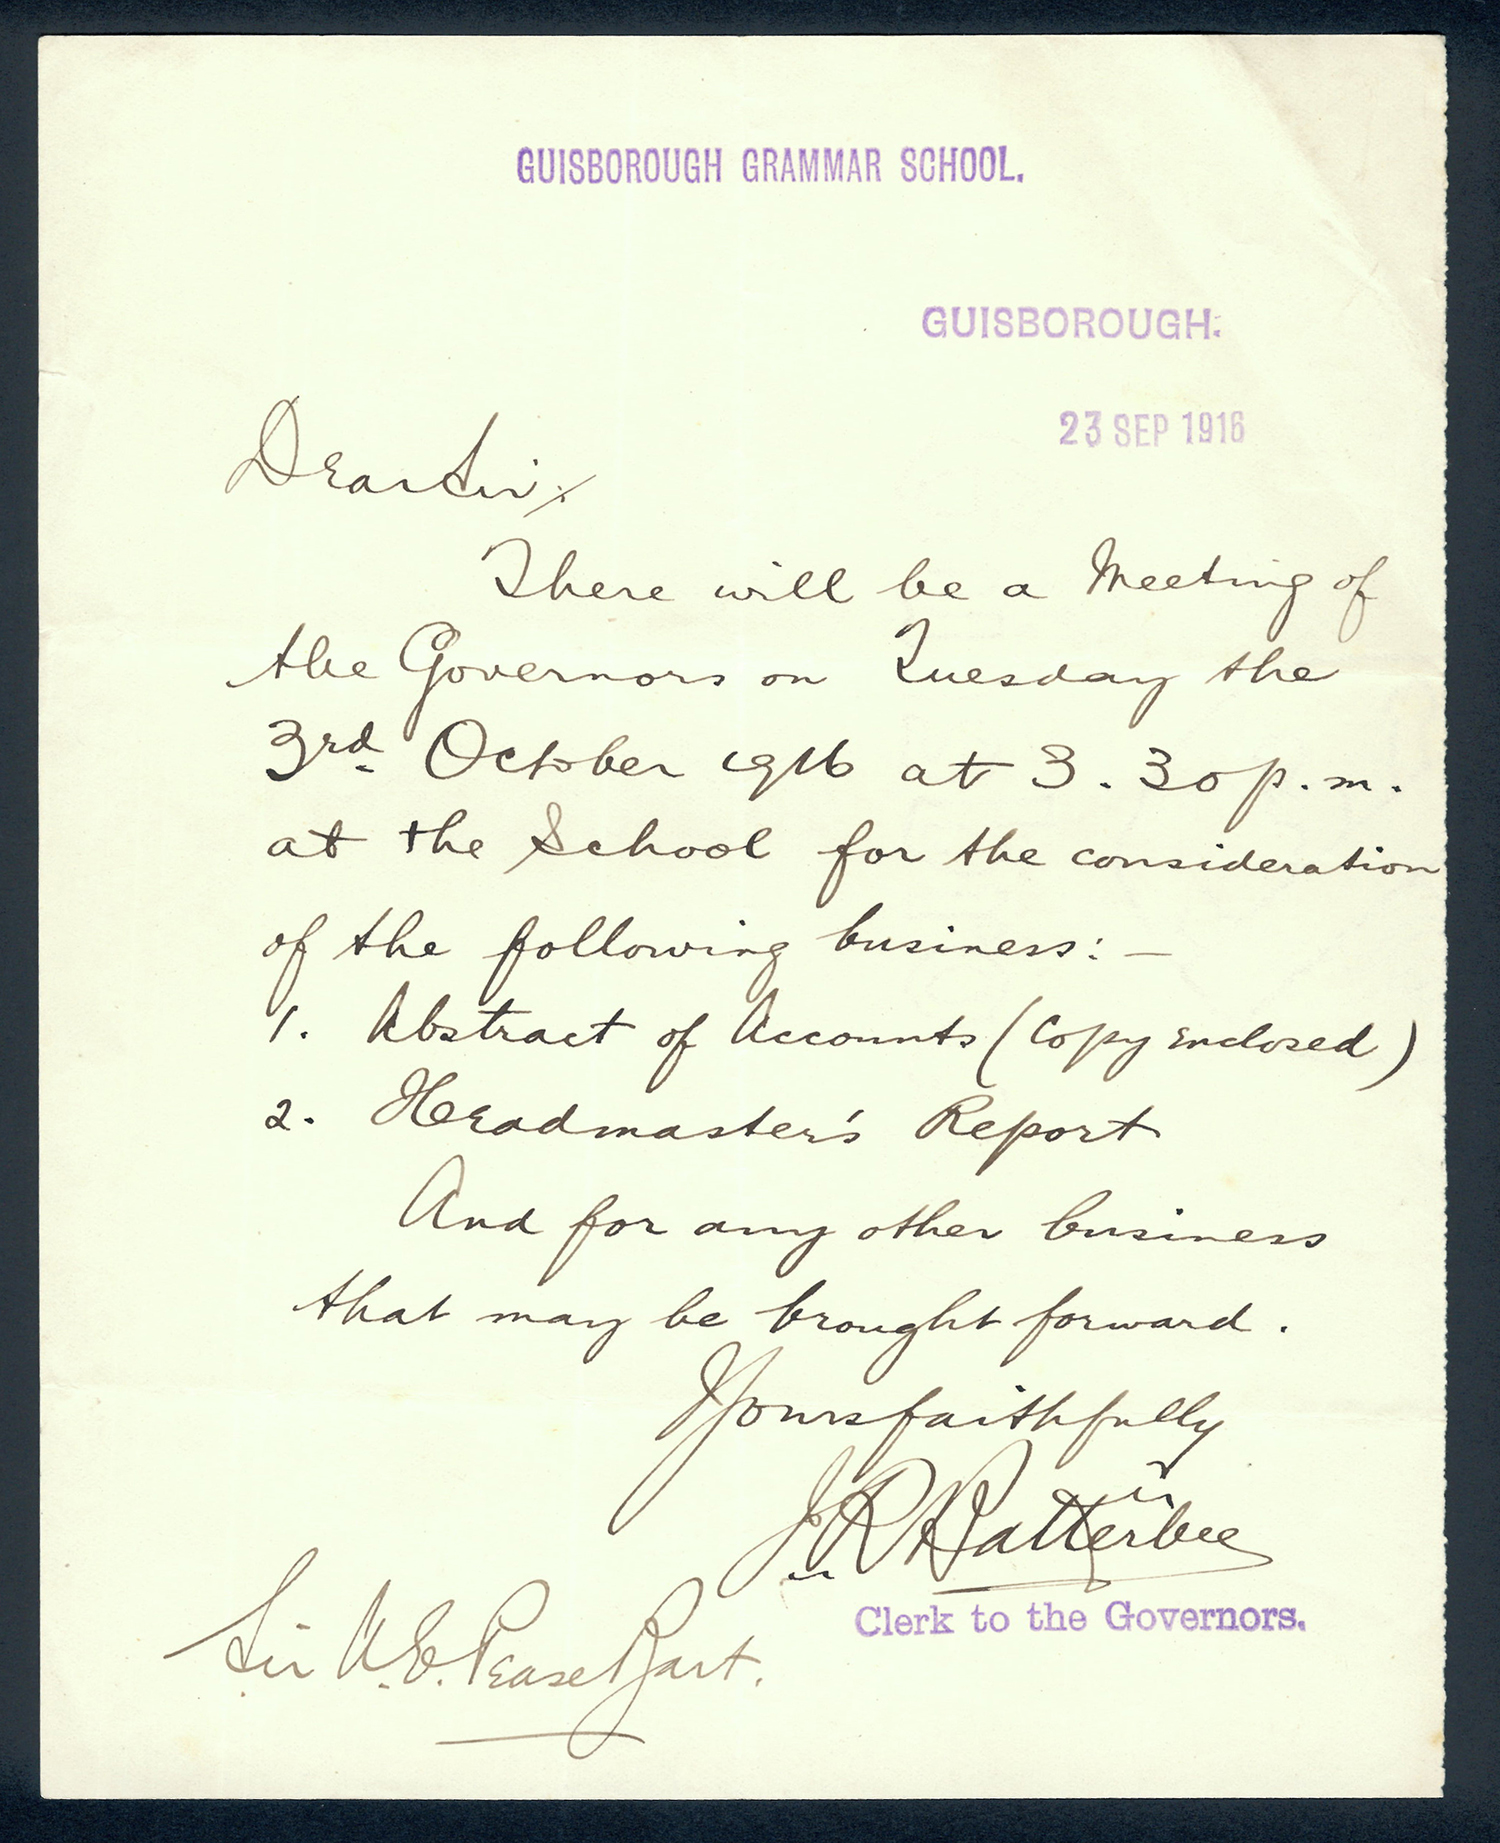 GUISBOROUGH GRAMMAR SCHOOL.
GUISBOROUGH.
23 SEP 1916
Dear Sir,
There will be a Meeting of
the Governors on Tuesday the
3rd. October 1916 at 3.30 p.m.
at the School for the consideration
of the following business: —
1. Abstract of Accounts (Copy enclosed)
2. Headmaster's Report
And for any other business
that may be brought forward.
Yours faithfully
Clerk to the Governors.
Sir A. E. Pease Bart.